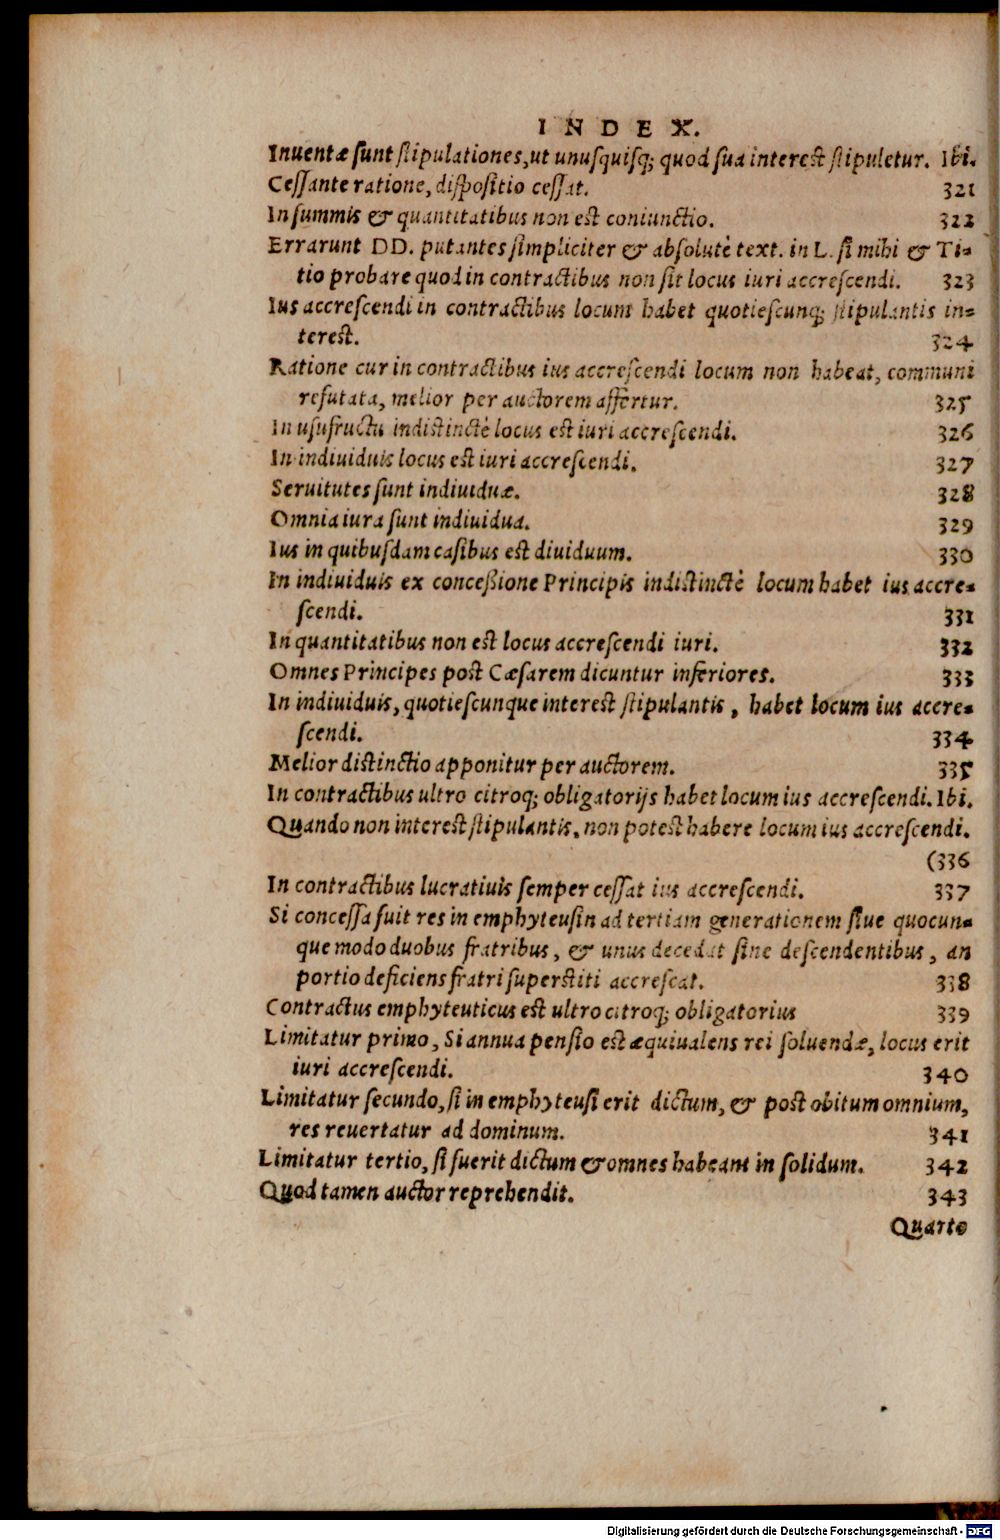 INDEX.
Inuentæ sunt stipulationes, ut unusquisq; quod sua interest stipuletur. Ibi.
Cessante ratione, dispositio cessat. 321
In summis & quantitatibus non est coniunctio. 322
Errarunt DD. putantes simpliciter & absolutè text. in L. si mihi & Ti-
tio probare quod in contractibus non sit locus iuri accrescendi. 323
Ius accrescendi in contractibus locum habet quotiescunq; stipulantis in-
terest. 324
Ratione cur in contractibus ius accrescendi locum non habeat, communi
refutata, melior per auctorem affertur. 325
In usufructu indistinctè locus est iuri accrescendi. 326
In indiuiduis locus est iuri accrescendi. 327
Seruitutes sunt indiuiduæ. 328
Omnia iura sunt indiuidua. 329
Ius in quibusdam casibus est diuiduum. 330
In indiuiduis ex concessione Principis indistinctè locum habet ius accre-
scendi. 331
In quantitatibus non est locus accrescendi iuri. 332
Omnes Principes post Cæsarem dicuntur inferiores. 333
In indiuiduis, quotiescunque interest stipulantis, habet locum ius accre-
scendi. 334
Melior distinctio apponitur per auctorem. 335
In contractibus ultro citroq; obligatorijs habet locum ius accrescendi. Ibi.
Quando non interest stipulantis, non potest habere locum ius accrescendi.
(336
In contractibus lucratiuis semper cessat ius accrescendi. 337
Si concessa fuit res in emphyteusin ad tertiam generationem siue quocun-
que modo duobus fratribus, & unus decedat sine descendentibus, an
portio deficiens fratri superstiti accrescat. 338
Contractus emphyteuticus est ultro citroq; obligatorius 339
Limitatur primo, Si annua pensio est æquiualens rei soluendæ, locus erit
iuri accrescendi. 340
Limitatur secundo, si in emphyteusi erit dictum, & post obitum omnium,
res reuertatur ad dominum. 341
Limitatur tertio, si fuerit dictum & omnes habeant in solidum. 342
Quod tamen auctor reprehendit. 343
Quarto
Digitalisierung gefördert durch die Deutsche Forschungsgemeinschaft - DFG